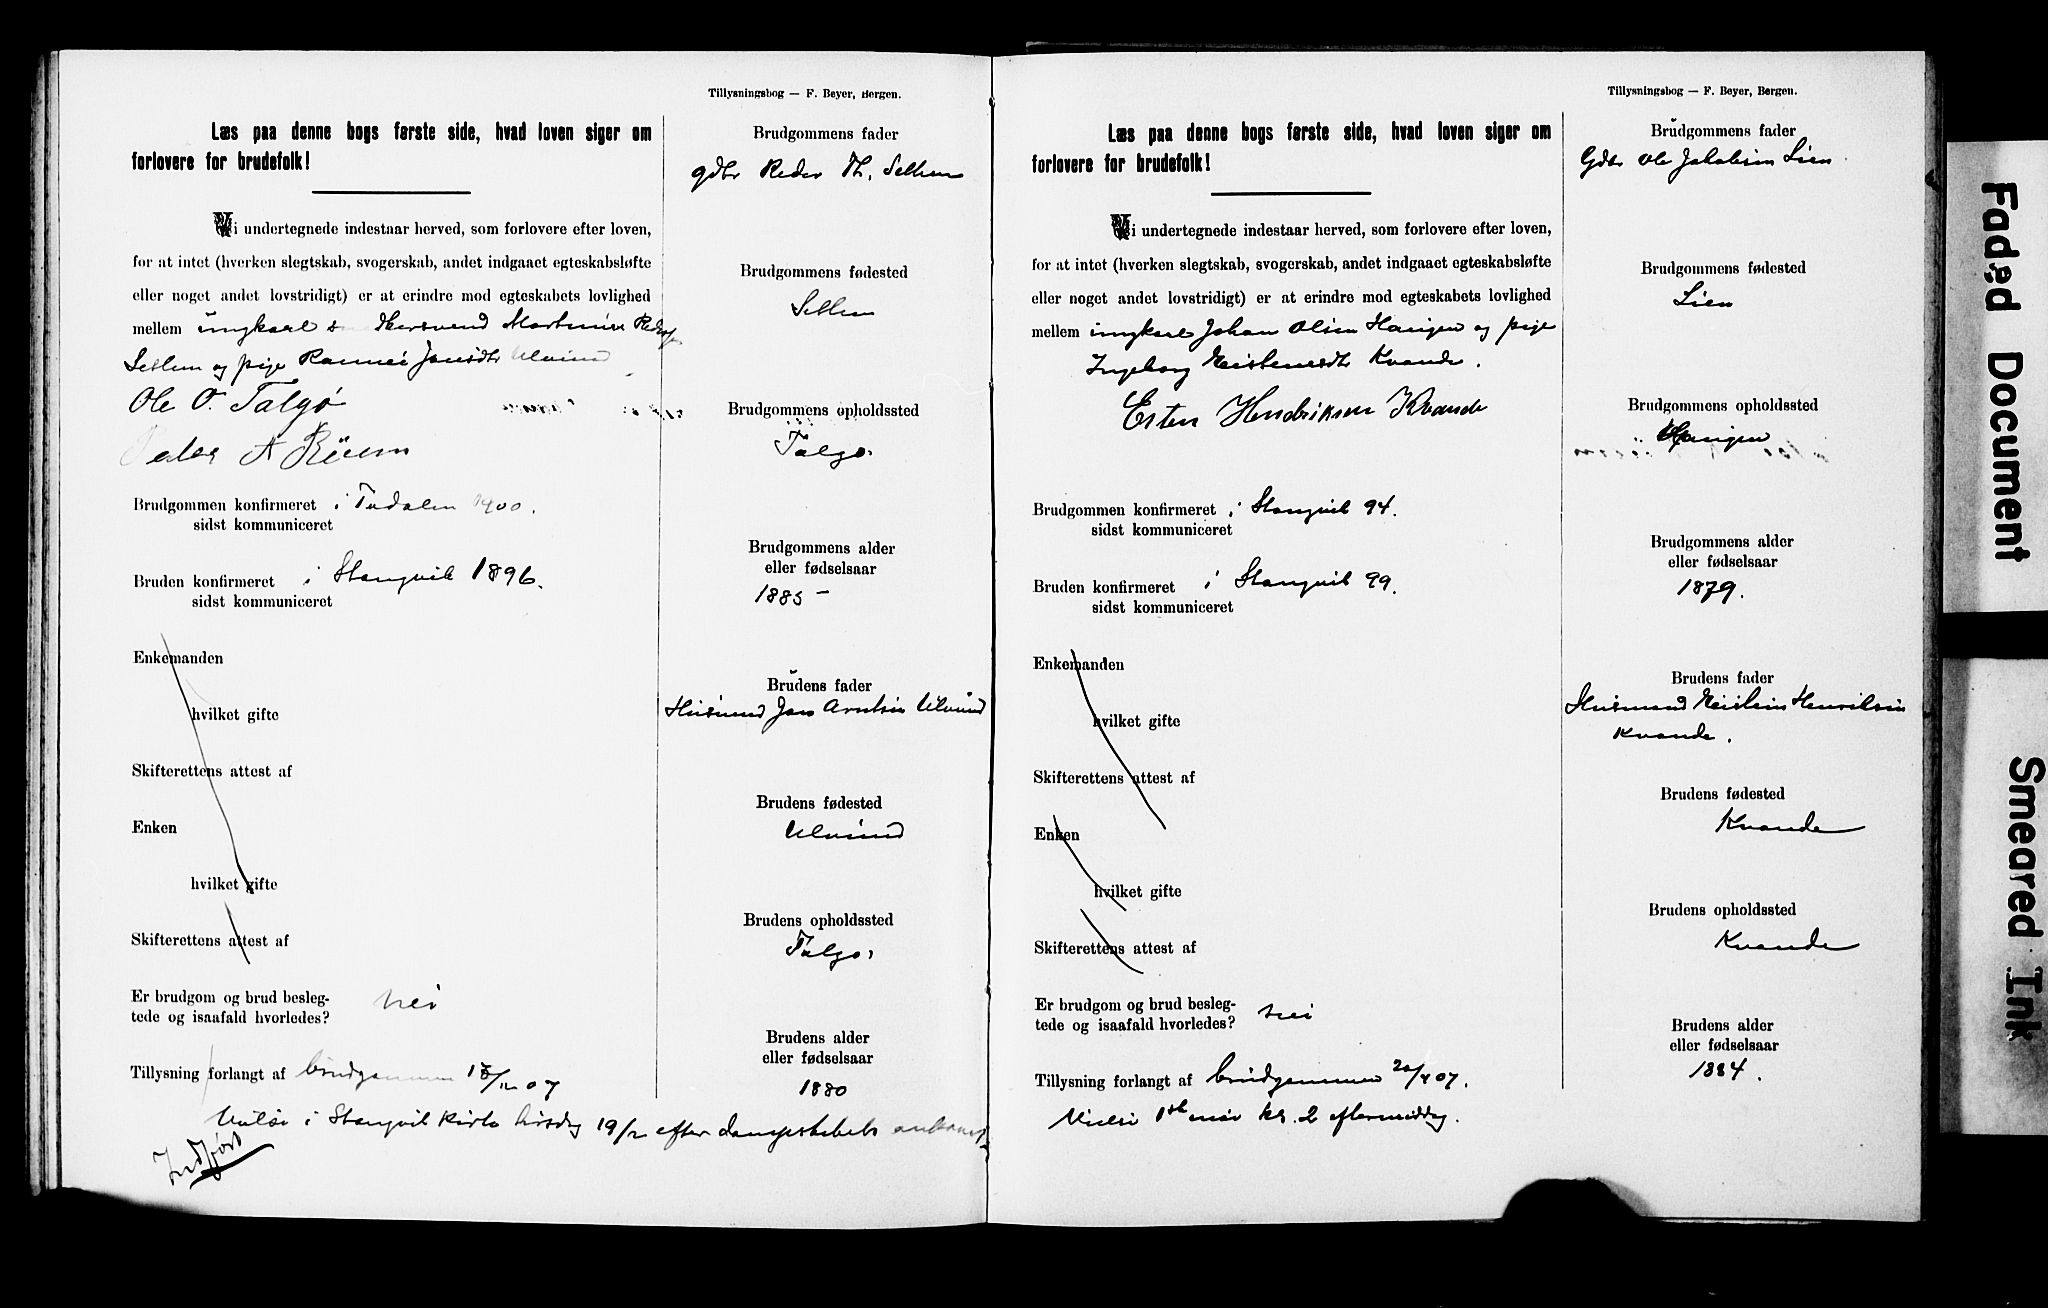 Tillysningsbog — F. Beyer, Bergen.
Læs paa denne bogs første side, hvad loven siger om
forlovere for brudefolk!
Vi undertegnede indestaar herved, som forlovere efter loven,
for at intet (hverken slegtskab, svogerskab, andet indgaaet egteskabsløfte
eller noget andet lovstridigt) er at erindre mod egteskabets lovlighed
mellem ungkarl
Sellem og pige Jonsdtr Ulvund
Ole O. Talgø
Peder A
Brudgommen konfirmeret i Todalen 1900.
sidst kommuniceret
Bruden konfirmeret i Stangvik 1896.
sidst kommuniceret
Enkemanden
hvilket gifte
Skifterettens attest af
Enken
hvilket gifte
Skifterettens attest af
Er brudgom og brud besleg-
tede og isaafald hvorledes? nei
Tillysning forlangt af brudgommen 07
i Stangvik kirke tirsdag 19/ efter dampskibets ankomst
Indført
Brudgommens fader
gdbr Peder Th. Sellem
Brudgommens fødested
Sellem
Brudgommens opholdssted
Talgø
Brudgommens alder
eller fødselsaar
1885 –
Brudens fader
Husmand Jon Arntsen Ulvund
Brudens fødested
Ulvund
Brudens opholdssted
Talgø
Brudens alder
eller fødselsaar
1880
Tillysningsbog — F. Beyer, Bergen.
Læs paa denne bogs første side, hvad loven siger om
forlovere for brudefolk!
Vi undertegnede indestaar herved, som forlovere efter loven,
for at intet (hverken slegtskab, svogerskab, andet indgaaet egteskabsløfte
eller noget andet lovstridigt) er at erindre mod egteskabets lovlighed
mellem ungkarl Johan Olsen Haugen og pige
Ingeborg Eistensdtr Kvande.
Esten Hendriksen Kvande
Brudgommen konfirmeret i Stangvik 94.
sidst kommuniceret
Bruden konfirmeret i Stangvik 99.
sidst kommuniceret
Enkemanden
hvilket gifte
Skifterettens attest af
Enken
hvilket gifte
Skifterettens attest af
Er brudgom og brud besleg-
tede og isaafald hvorledes? nei
Tillysning forlangt af brudgommen 20/4 07.
Vielse 1ste mai kl. 2 eftermiddag.
Brudgommens fader
Gdbr Ole Jakobsen Lien
Brudgommens fødested
Lien
Brudgommens opholdssted
Haugen
Brudgommens alder
eller fødselsaar
1879.
Brudens fader
Husmand Eisten Henriksen
Kvande.
Brudens fødested
Kvande
Brudens opholdssted
Kvande
Brudens alder
eller fødselsaar
1884.
Faded Document
Smeared Ink